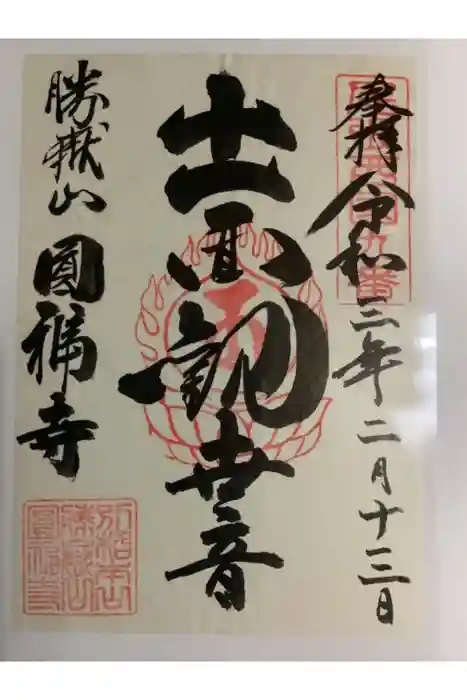 奉拝 令和三年二月十三日
十一面観世音
勝嶽山 圓福寺